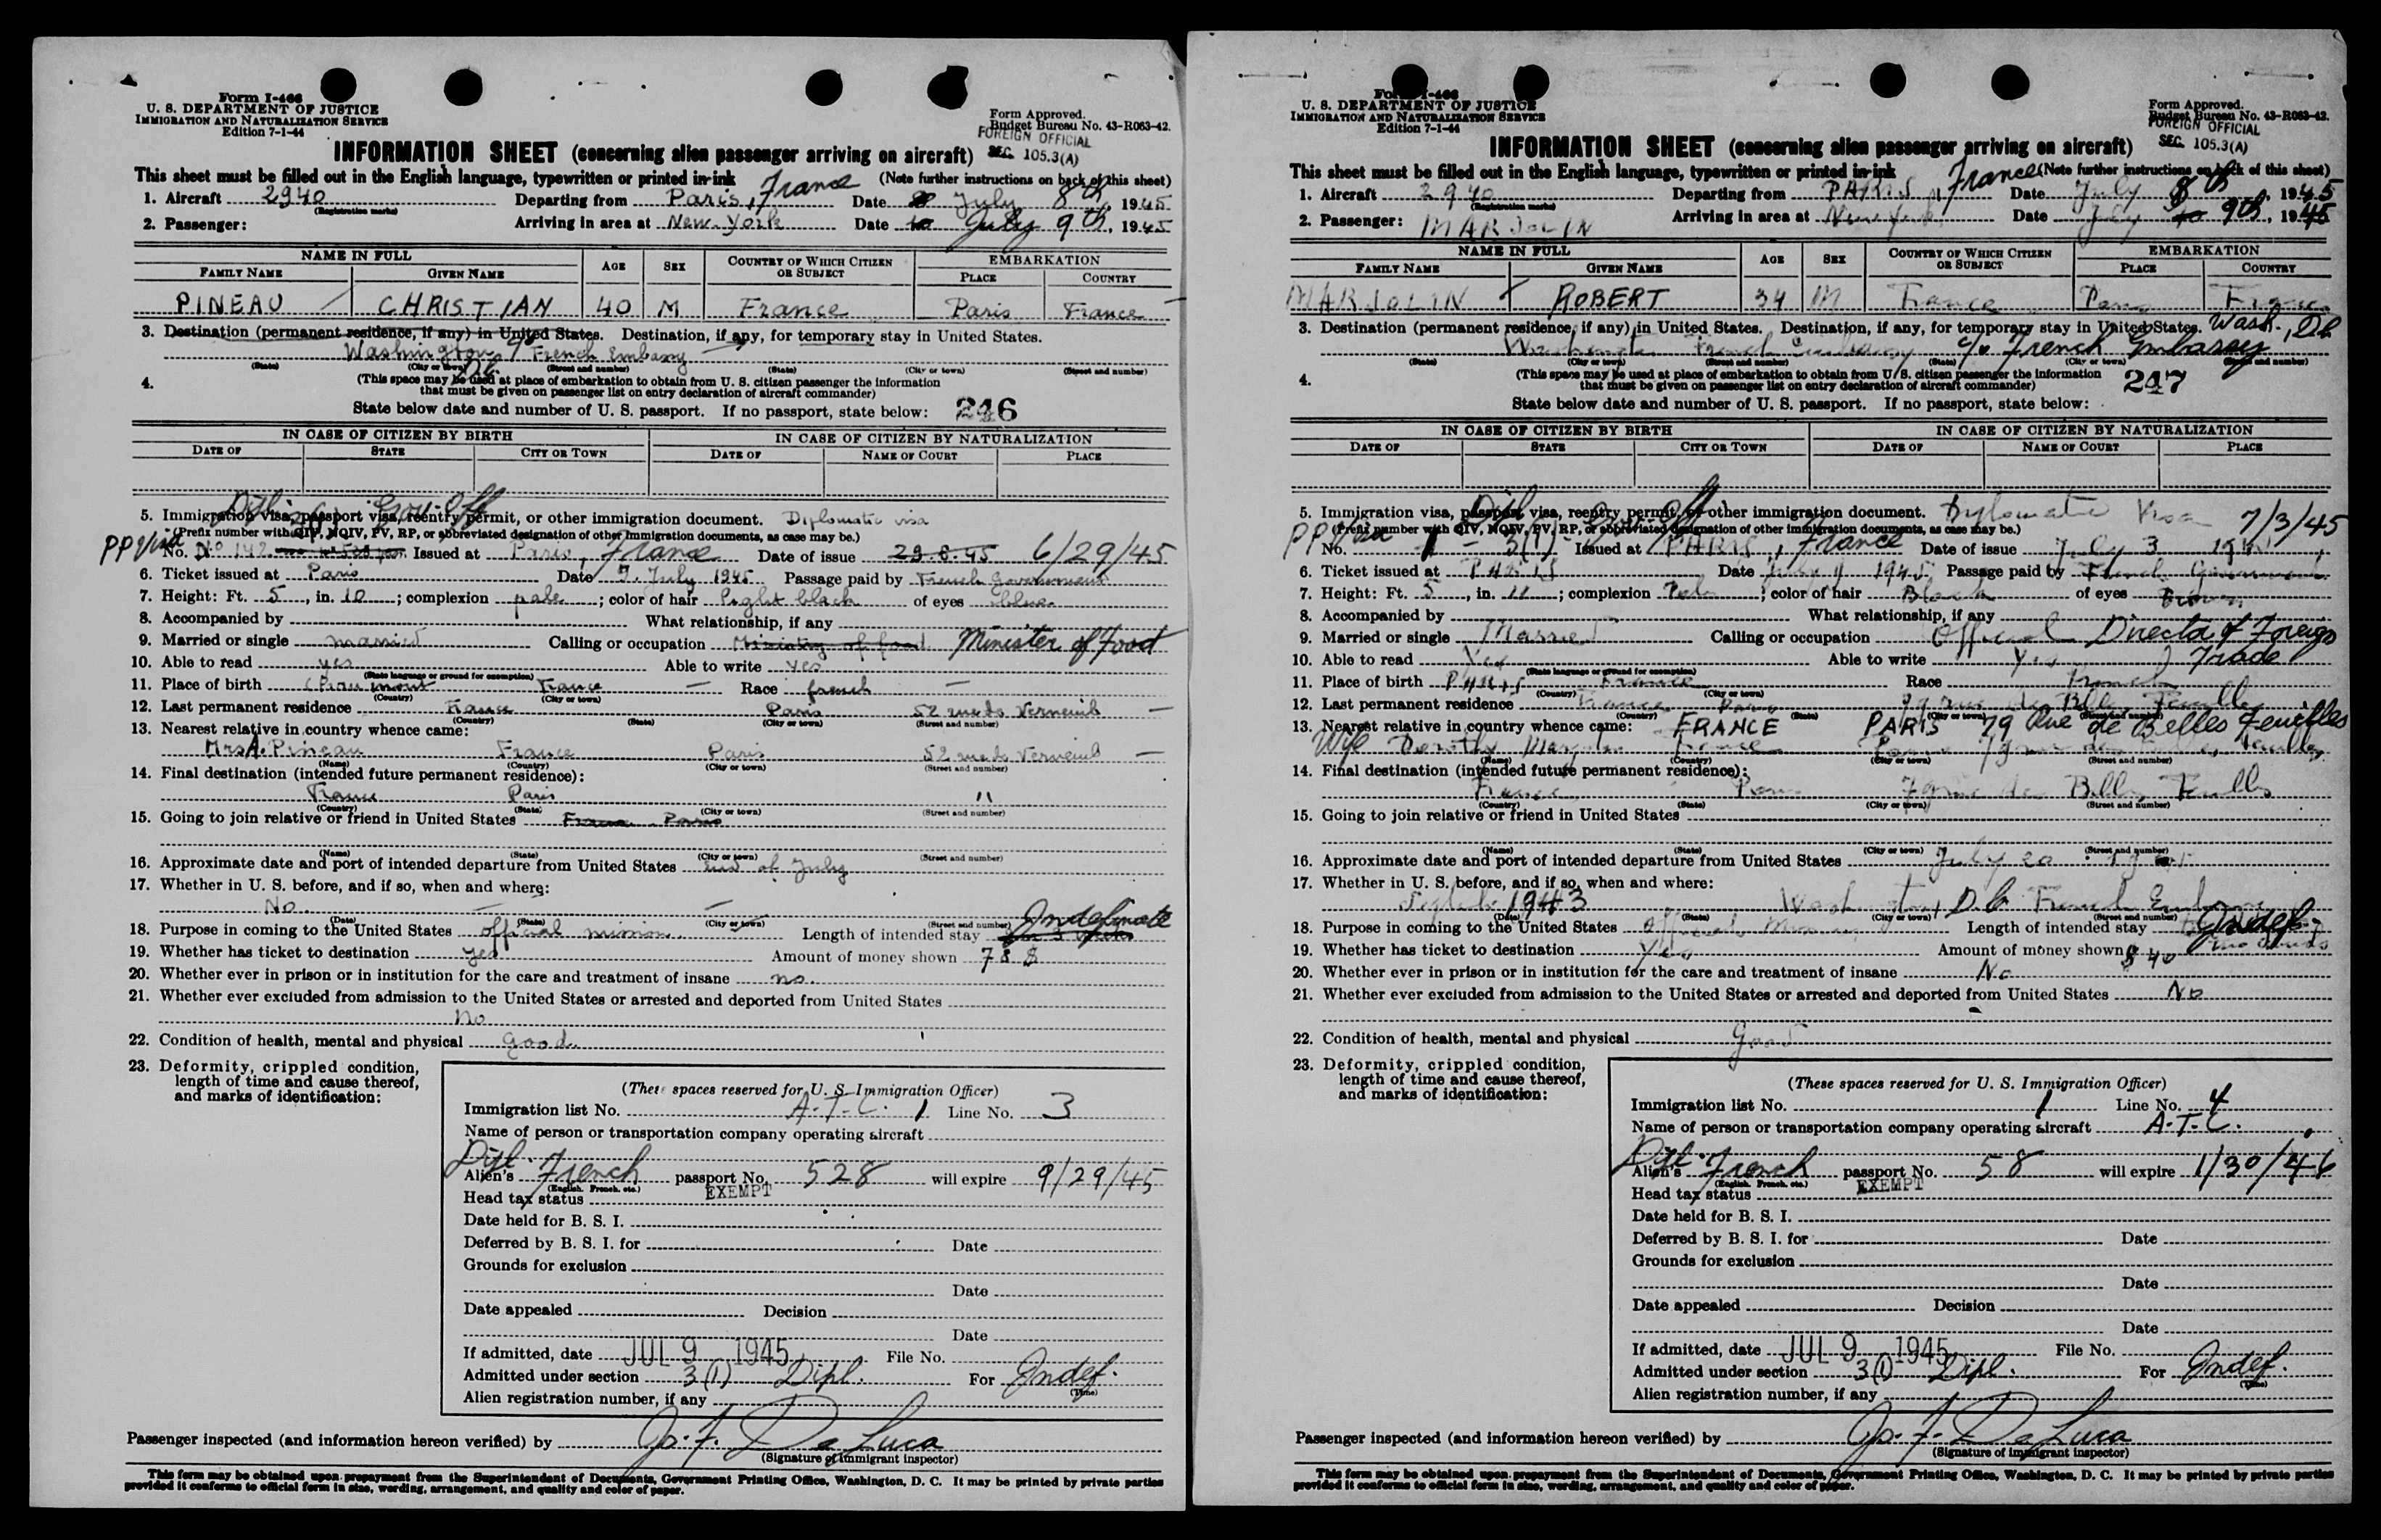 Form I-466
U. S. DEPARTMENT OF JUSTICE
IMMIGRATION AND NATURALIZATION SERVICE
Edition 7-1-44
Form Approved.
Budget Bureau No. 43-R063-42.
FOREIGN OFFICIAL
SEC. 105.3(A)
INFORMATION SHEET (concerning alien passenger arriving on aircraft)
This sheet must be filled out in the English language, typewritten or printed in ink (Note further instructions on back of this sheet)
1. Aircraft 2940 Departing from Paris, France Date July 8th, 1945
(Registration marks)
2. Passenger: Arriving in area at New York Date July 9th, 1945
NAME IN FULL AGE SEX COUNTRY OF WHICH CITIZEN OR SUBJECT EMBARKATION
FAMILY NAME GIVEN NAME PLACE COUNTRY
PINEAU CHRISTIAN 40 M France Paris France
3. Destination (permanent residence, if any) in United States. Destination, if any, for temporary stay in United States.
Washington French Embassy
(State) (City or town) (Street and number) (State) (City or town) (Street and number)
4. (This space may be used at place of embarkation to obtain from U. S. citizen passenger the information
that must be given on passenger list on entry declaration of aircraft commander)
State below date and number of U. S. passport. If no passport, state below: 246
IN CASE OF CITIZEN BY BIRTH IN CASE OF CITIZEN BY NATURALIZATION
DATE OF STATE CITY OR TOWN DATE OF NAME OF COURT PLACE
Dipl. Gov. Off
5. Immigration visa, passport visa, reentry permit, or other immigration document. Diplomatic visa
(Prefix number with QIV, NQIV, PV, RP, or abbreviated designation of other immigration documents, as case may be.)
PP visa No. No 142 Issued at Paris, France Date of issue 29.8.45 6/29/45
6. Ticket issued at Paris Date 7 July 1945 Passage paid by French Government
7. Height: Ft. 5, in. 10; complexion pale; color of hair light black of eyes blue
8. Accompanied by What relationship, if any
9. Married or single married Calling or occupation Ministry of food Minister of Food
10. Able to read yes Able to write yes
(State language or ground for exemption)
11. Place of birth France Race french
(Country) (City or town)
12. Last permanent residence France Paris 52 rue de Verneuil
(Country) (State) (City or town) (Street and number)
13. Nearest relative in country whence came:
Mrs A. Pineau France Paris 52 rue de Verneuil
(Name) (Country) (City or town) (Street and number)
14. Final destination (intended future permanent residence):
France Paris "
(Country) (State) (City or town) (Street and number)
15. Going to join relative or friend in United States France Paris
(Name) (State) (City or town) (Street and number)
16. Approximate date and port of intended departure from United States end of July
17. Whether in U. S. before, and if so, when and where:
No.
(Date) (State) (City or town) (Street and number)
18. Purpose in coming to the United States official mission Length of intended stay Indefinate
19. Whether has ticket to destination yes Amount of money shown 78 $
20. Whether ever in prison or in institution for the care and treatment of insane no.
21. Whether ever excluded from admission to the United States or arrested and deported from United States
No
22. Condition of health, mental and physical good.
23. Deformity, crippled condition,
length of time and cause thereof,
and marks of identification:
(These spaces reserved for U. S. Immigration Officer)
Immigration list No. A.T.C. 1 Line No. 3
Name of person or transportation company operating aircraft
Dipl.
Alien's French passport No. 528 will expire 9/29/45
(English, French, etc.)
Head tax status EXEMPT
Date held for B. S. I.
Deferred by B. S. I. for Date
Grounds for exclusion
Date
Date appealed Decision
Date
If admitted, date JUL 9 1945 File No.
Admitted under section 3(1) Dipl. For Indef.
(Time)
Alien registration number, if any
Passenger inspected (and information hereon verified) by Jo. F. De Luca
(Signature of immigrant inspector)
This form may be obtained upon prepayment from the Superintendent of Documents, Government Printing Office, Washington, D. C. It may be printed by private parties
provided it conforms to official form in size, wording, arrangement, and quality and color of paper.
Form I-466
U. S. DEPARTMENT OF JUSTICE
IMMIGRATION AND NATURALIZATION SERVICE
Edition 7-1-44
Form Approved.
Budget Bureau No. 43-R063-42.
FOREIGN OFFICIAL
SEC. 105.3(A)
INFORMATION SHEET (concerning alien passenger arriving on aircraft)
This sheet must be filled out in the English language, typewritten or printed in ink (Note further instructions on back of this sheet)
1. Aircraft 2940 Departing from PARIS, France Date July 8th, 1945
(Registration marks)
2. Passenger: MARJOLIN Arriving in area at New York Date July 9th, 1945
NAME IN FULL AGE SEX COUNTRY OF WHICH CITIZEN OR SUBJECT EMBARKATION
FAMILY NAME GIVEN NAME PLACE COUNTRY
MARJOLIN ROBERT 34 M France Paris France
3. Destination (permanent residence, if any) in United States. Destination, if any, for temporary stay in United States. Wash., DC
Washington French Embassy c/o French Embassy
(State) (City or town) (Street and number) (State) (City or town) (Street and number)
4. (This space may be used at place of embarkation to obtain from U. S. citizen passenger the information
that must be given on passenger list on entry declaration of aircraft commander)
247
State below date and number of U. S. passport. If no passport, state below:
IN CASE OF CITIZEN BY BIRTH IN CASE OF CITIZEN BY NATURALIZATION
DATE OF STATE CITY OR TOWN DATE OF NAME OF COURT PLACE
5. Immigration visa, passport visa, reentry permit, or other immigration document. Diplomatic Visa 7/3/45
(Prefix number with QIV, NQIV, PV, RP, or abbreviated designation of other immigration documents, as case may be.)
PP visa No. 3(1) Issued at PARIS, France Date of issue July 3
6. Ticket issued at PARIS Date July 1945 Passage paid by French Government
7. Height: Ft. 5, in. 11; complexion Pale; color of hair Black of eyes Brown
8. Accompanied by What relationship, if any
9. Married or single Married Calling or occupation Official Director of Foreign
10. Able to read Yes Able to write Yes Trade
(State language or ground for exemption)
11. Place of birth PARIS France Race French
(Country) (City or town)
12. Last permanent residence France Paris 79 rue des Belles Feuilles
(Country) (State) (City or town) (Street and number)
13. Nearest relative in country whence came: FRANCE PARIS 79 Rue de Belles Feuilles
Wife Dorothy Marjolin France Paris 79 rue des Belles Feuilles
(Name) (Country) (City or town) (Street and number)
14. Final destination (intended future permanent residence):
France Paris 79 rue des Belles Feuilles
(Country) (State) (City or town) (Street and number)
15. Going to join relative or friend in United States
(Name) (State) (City or town) (Street and number)
16. Approximate date and port of intended departure from United States July 20
17. Whether in U. S. before, and if so, when and where:
1943 Washington, D.C. French Embassy
(Date) (State) (City or town) (Street and number)
18. Purpose in coming to the United States Official Mission Length of intended stay Indef.
19. Whether has ticket to destination Yes Amount of money shown $ 40
20. Whether ever in prison or in institution for the care and treatment of insane No
21. Whether ever excluded from admission to the United States or arrested and deported from United States No
22. Condition of health, mental and physical good
23. Deformity, crippled condition,
length of time and cause thereof,
and marks of identification:
(These spaces reserved for U. S. Immigration Officer)
Immigration list No. 1 Line No. 4
Name of person or transportation company operating aircraft A.T.C.
Dipl.
Alien's French passport No. 58 will expire 1/30/46
(English, French, etc.)
Head tax status EXEMPT
Date held for B. S. I.
Deferred by B. S. I. for Date
Grounds for exclusion
Date
Date appealed Decision
Date
If admitted, date JUL 9 1945 File No.
Admitted under section 3(1) Dipl. For Indef.
(Time)
Alien registration number, if any
Passenger inspected (and information hereon verified) by Jo. F. De Luca
(Signature of immigrant inspector)
This form may be obtained upon prepayment from the Superintendent of Documents, Government Printing Office, Washington, D. C. It may be printed by private parties
provided it conforms to official form in size, wording, arrangement, and quality and color of paper.